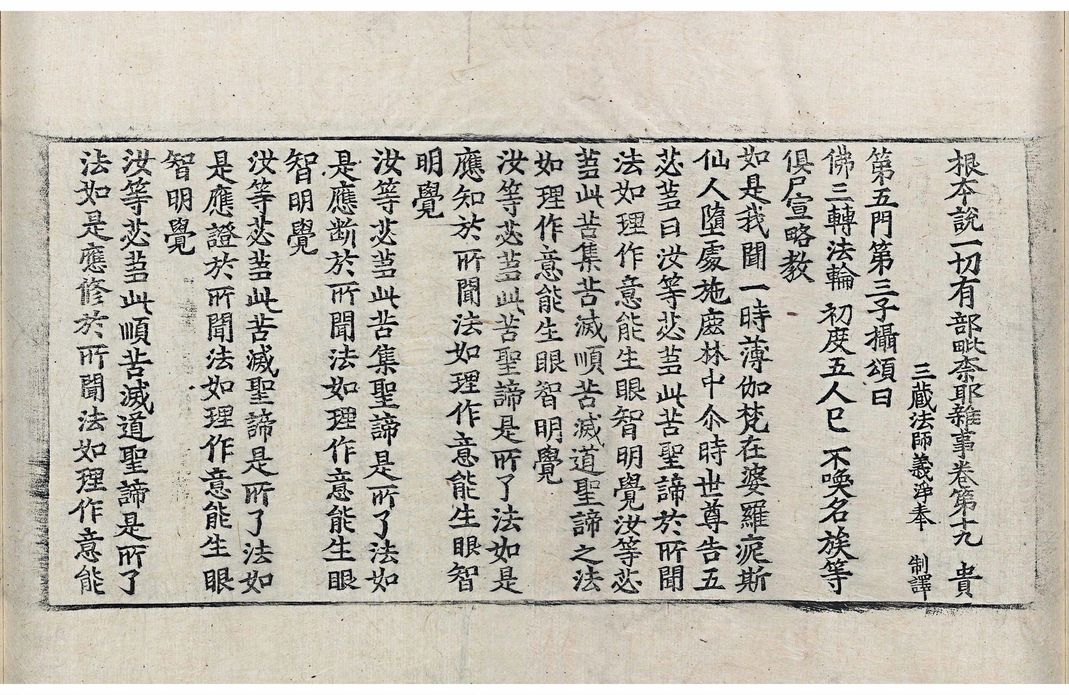 根本說一切有部毗奈耶雜事卷第十九 貴
三藏法師義淨奉 制譯
第五門第三子攝頌曰
佛三轉法輪 初度五人已 不喚名族等
俱尸宣略教
如是我聞一時薄伽梵在婆羅痆斯
仙人墮處施鹿林中尒時世尊告五
苾芻曰汝等苾芻此苦聖諦於所聞
法如理作意能生眼智明覺汝等苾
芻此苦集苦滅順苦滅道聖諦之法
如理作意能生眼智明覺
汝等苾芻此苦聖諦是所了法如是
應知於所聞法如理作意能生眼智
明覺
汝等苾芻此苦集聖諦是所了法如
是應斷於所聞法如理作意能生眼
智明覺
汝等苾芻此苦滅聖諦是所了法如
是應證於所聞法如理作意能生眼
智明覺
汝等苾芻此順苦滅道聖諦是所了
法如是應修於所聞法如理作意能